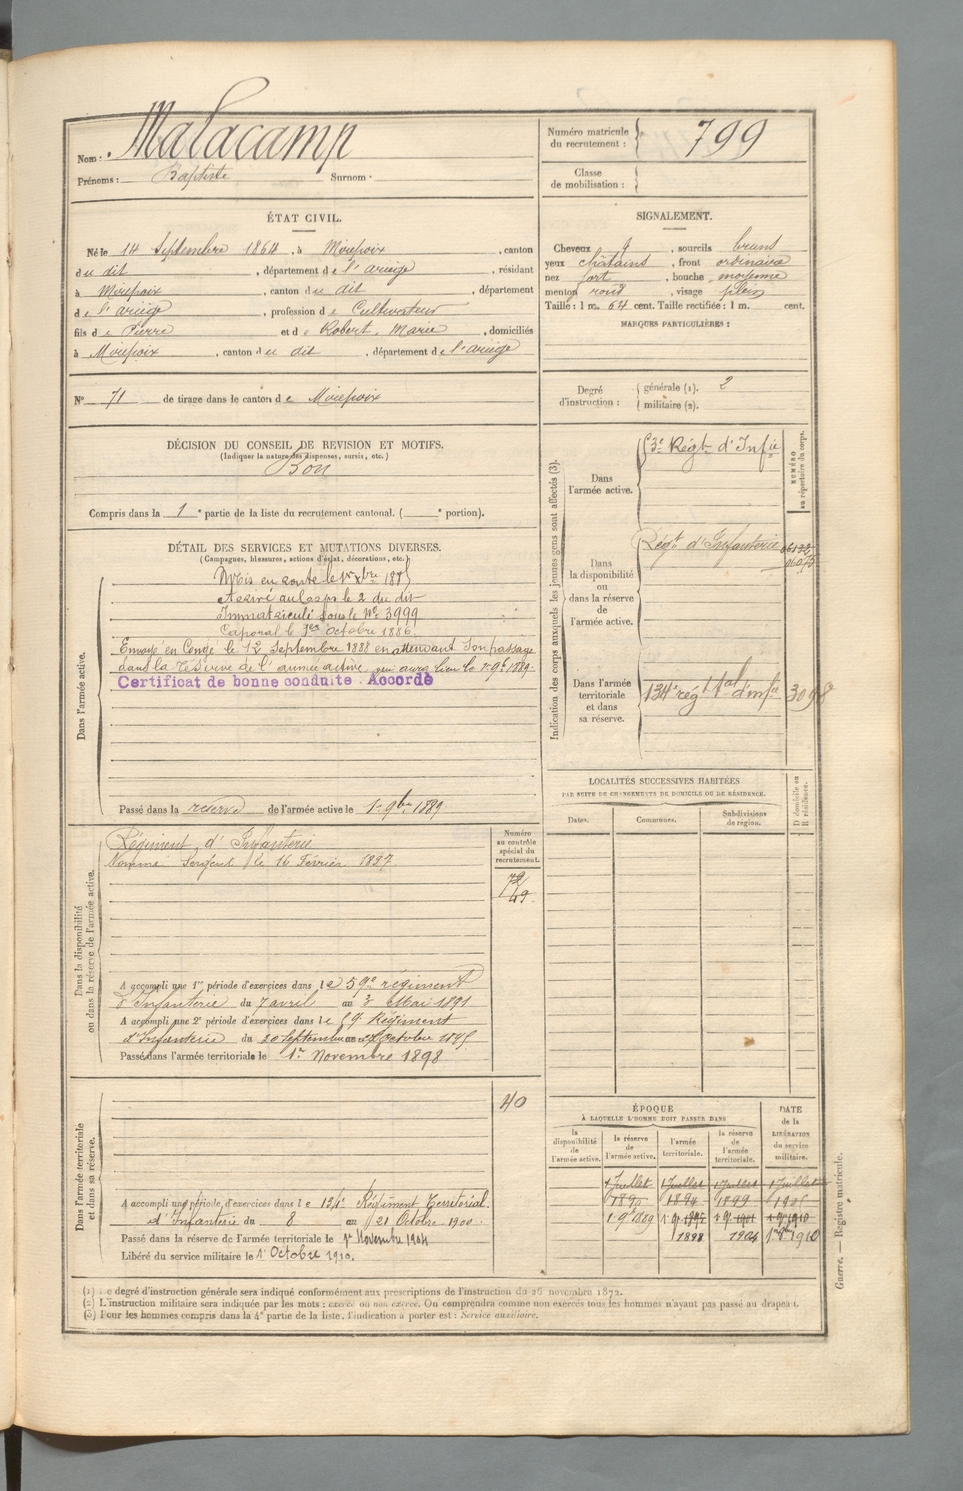 Nom : Malacamp
Prénoms : Baptiste Surnom :
Numéro matricule du recrutement : 799
Classe de mobilisation :
ÉTAT CIVIL.
Né le 14 Septembre 1864, à Mirepoix, canton
du dit, département de l'ariège, résidant
à Mirepoix, canton du dit, département
de l'ariège, profession de Cultivateur
fils de Pierre et de Robert, Marie, domiciliés
à Mirepoix, canton du dit, département de l'ariège
N° 71 de tirage dans le canton de Mirepoix
SIGNALEMENT.
Cheveux d, sourcils bruns
yeux châtains, front ordinaire
nez fort, bouche moyenne
menton rond, visage plein
Taille : 1 m. 64 cent. Taille rectifiée : 1 m. cent.
MARQUES PARTICULIÈRES :
Degré d'instruction : générale (1). 2
militaire (2).
DÉCISION DU CONSEIL DE REVISION ET MOTIFS.
(Indiquer la nature des dispenses, sursis, etc.)
Bon
Compris dans la 1e partie de la liste du recrutement cantonal. ( e portion).
DÉTAIL DES SERVICES ET MUTATIONS DIVERSES.
(Campagnes, blessures, actions d'éclat, décorations, etc.)
Dans l'armée active.
Mis en route le 1er Xbre
Arrivé au Corps le 2 du dit
Immatriculé sous le N° 3999
Caporal le 1er Octobre 1886
Envoyé en Congé le 12 Septembre 1888 en attendant son passage
dans la réserve de l'armée active, qui aura lieu le 1er 9bre 1889.
Certificat de bonne conduite Accordé
Passé dans la réserve de l'armée active le 1er 9bre 1889
Indication des corps auxquels les jeunes gens sont affectés (3).
NUMÉRO au répertoire du corps.
Dans l'armée active.
Régt d'Infie
Dans la disponibilité ou dans la réserve de l'armée active.
Régt d'Infanterie
Dans l'armée territoriale et dans sa réserve.
134e régt tal d'infie 3098
LOCALITÉS SUCCESSIVES HABITÉES
PAR SUITE DE CHANGEMENTS DE DOMICILE OU DE RÉSIDENCE.
Dates.
Communes.
Subdivisions de région.
D domicile ou R résidence.
Dans la disponibilité ou dans la réserve de l'armée active.
Numéro au contrôle spécial du recrutement.
Régiment d'Infanterie
Nommé Sergent le 16 Février 1897
A accompli une 1re période d'exercices dans le 59e régiment
d'Infanterie du 7 avril au 3 Mai 1891
A accompli une 2e période d'exercices dans le 59e Régiment
d'Infanterie du 20 Septembre au Octobre 1895
Passé dans l'armée territoriale le 1er Novembre 1898
Dans l'armée territoriale et dans sa réserve.
40
A accompli une période d'exercices dans le 134e Régiment Territorial
d'Infanterie du 8 au 21 Octobre 1900.
Passé dans la réserve de l'armée territoriale le 1er Novembre 1904
Libéré du service militaire le 1er Octobre 1910.
ÉPOQUE
À LAQUELLE L'HOMME DOIT PASSER DANS
la disponibilité de l'armée active.
la réserve de l'armée active.
l'armée territoriale.
la réserve de l'armée territoriale.
DATE de la LIBÉRATION du service militaire.
1 Juillet 1 Juillet 1 Juillet 1 Juillet
1890 1894 1899 1905
1er 9bre 1889 1er 9bre 1895 1er 9bre 1901 1er 9bre 1910
1898 1904 1910
(1) Le degré d'instruction générale sera indiqué conformément aux prescriptions de l'instruction du 26 novembre 1872.
(2) L'instruction militaire sera indiquée par les mots : exercé ou non exercé. On comprendra comme non exercés tous les hommes n'ayant pas passé au drapeau.
(3) Pour les hommes compris dans la 4e partie de la liste, l'indication à porter est : Service auxiliaire.
Guerre. — Registre matricule.